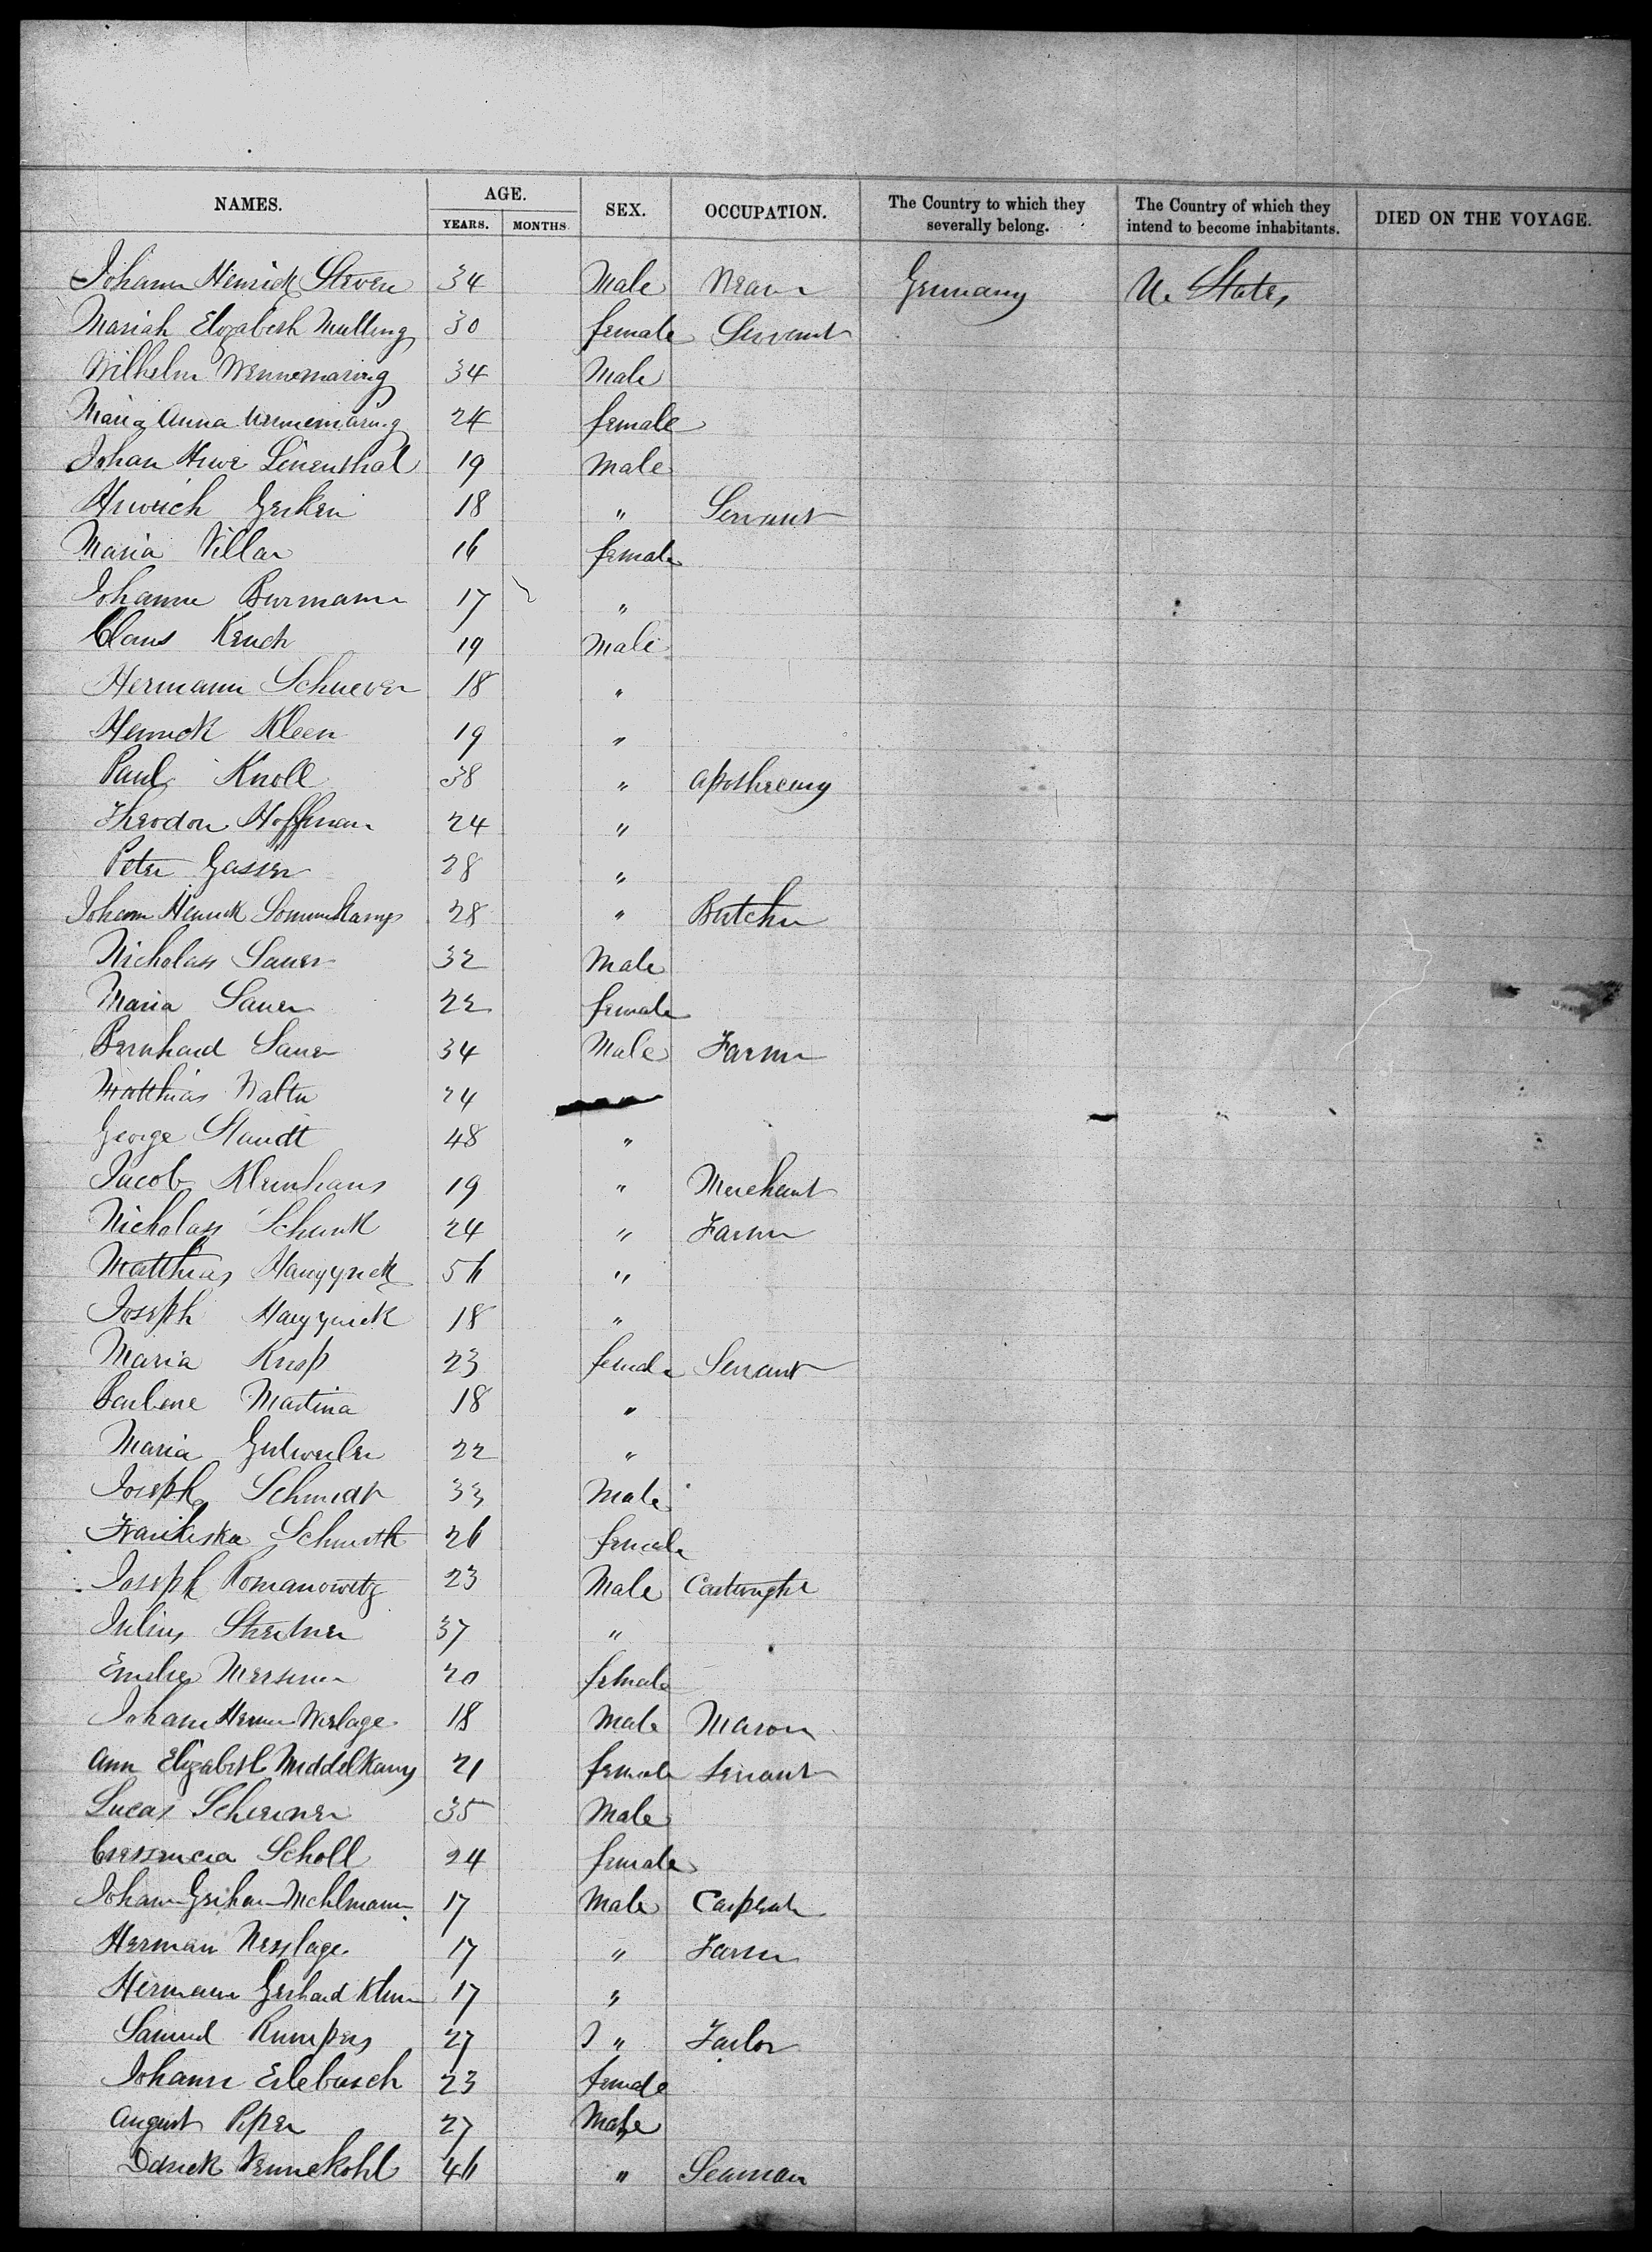 NAMES. AGE. SEX. OCCUPATION. The Country to which they severally belong. The Country of which they intend to become inhabitants. DIED ON THE VOYAGE.
YEARS. MONTHS.
Johann Henrick Steven 34 Male Germany U. States
Mariah Elizabeth 30 female Servant
Wilhelm Wennemaring 34 Male
Maria Anna Wennemaring 24 female
Johan Linenthal 19 Male
Hinrich Gerken 18 " Servant
Maria Villan 16 female
Johanne Burmann 17 "
Claus Kruck 19 Male
Hermann Schriever 18 "
Henrick Kleen 19 "
Paul Knoll 38 " Apothecary
Theodor Hoffman 24 "
Peter Gasser 28 "
Johann Henrick Sommerkamp 28 " Butcher
Nicholass Sauer 32 Male
Maria Sauer 22 female
Bernhard Sauer 34 Male Farmer
Matthias Walter 24
George Staudt 48 "
Jacob Kleinhans 19 " Merchant
Nicholass Schunk 24 " Farmer
Matthias 56 "
Joseph 18 "
Maria Knop 23 female Servant
Martina 18 "
Maria Gutweiler 22 "
Joseph Schmidt 33 Male
Schmidt 26 female
Joseph Romanowitz 23 Male Cartwright
Julius 37 "
Emelie 20 female
Johann Herm Werlage 18 Male Mason
Ann Elizabeth Middelkamp 21 female Servant
Lucas Scheiner 35 Male
Scholl 24 female
Johann Mehlmann 17 Male Carpenter
Herman 17 " Farmer
Hermann Gerhard 17 "
Samuel Rumpers 27 " Tailor
Johann Erlebusch 23 female
August Piper 27 Male
Vennekohl 46 " Seaman